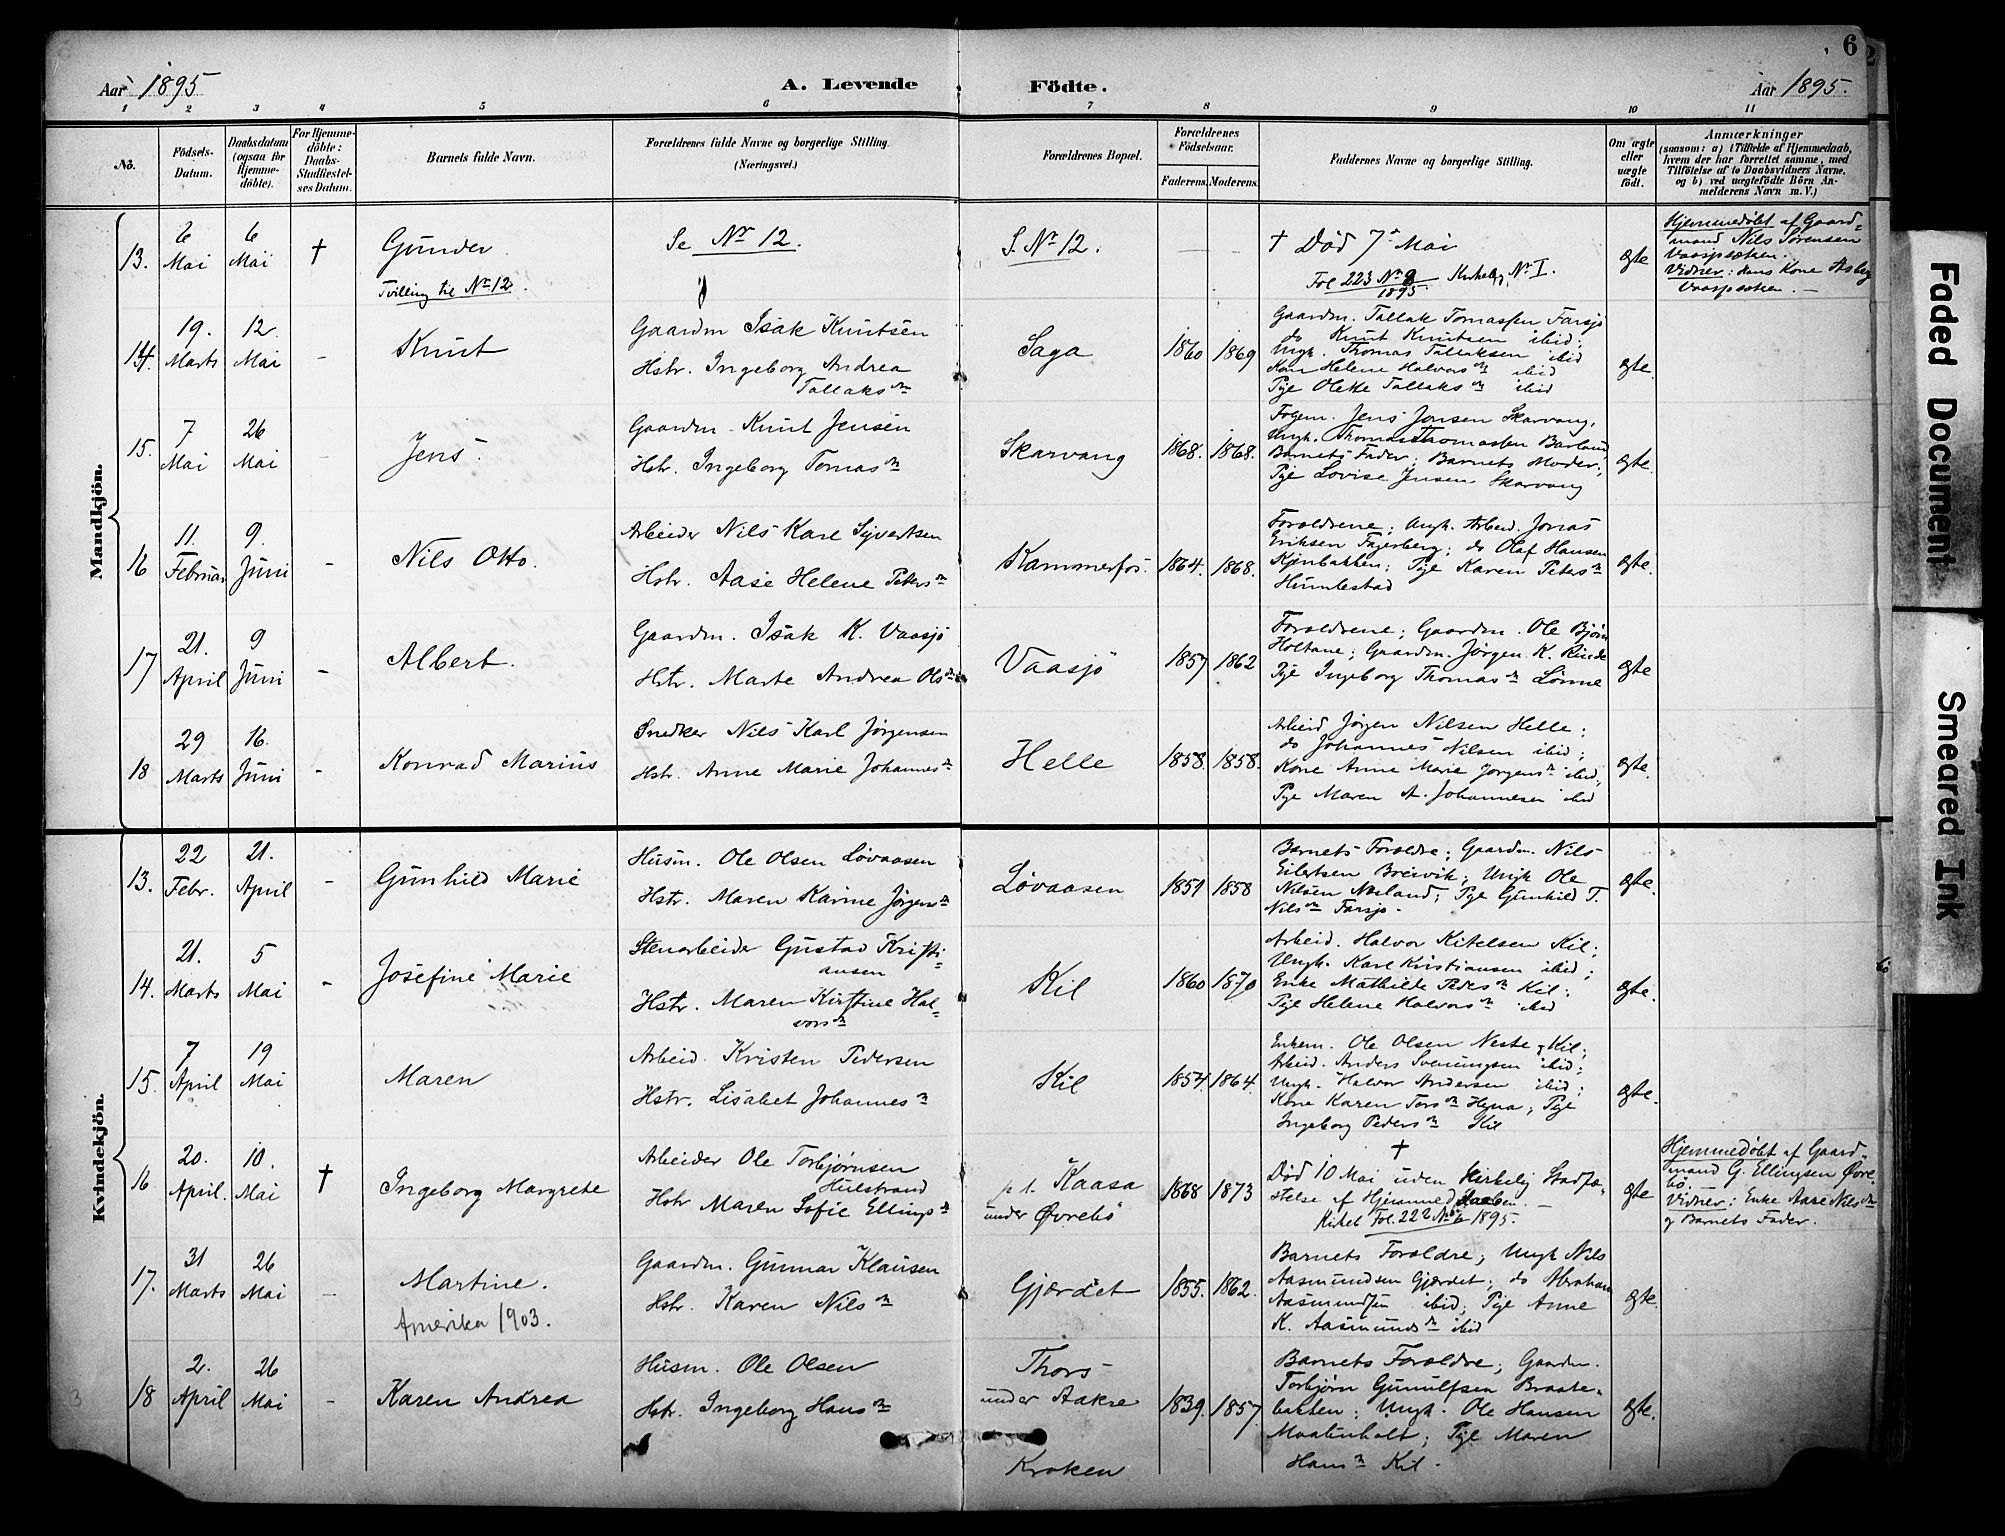 6
Aar 1895
A. Levende Fødte.
Aar 1895.
1 2 3 4 5 6 7 8 9 10 11
No.
Födsels-Datum.
Daabsdatum (ogsaa for Hjemme-döbte).
For Hjemme-döbte: Daabs-Stadfæstel-ses Datum.
Barnets fulde Navn.
Forældrenes fulde Navne og borgerlige Stilling.
(Næringsvei.)
Forældrenes Bopæl.
Forældrenes Födselsaar.
Faderens. Moderens.
Faddernes Navne og borgerlige Stilling.
Om ægte eller uægte födt.
Anmærkninger
(saasom: a) i Tilfælde af Hjemmedaab,
hvem der har forrettet samme, med
Tilföielse af to Daabsvidners Navne,
og b) ved uægtefödte Börn An-
melderens Navn m. V.)
Mandkjön.
13.
6 Mai
6 Mai
†
Gunder
Tvilling til No 12.
Se No 12.
S. No 12.
† Død 7. Mai
Fol 223 No 1895
ægte
Hjemmedøbt af Gaard=
mand Nils Sørensen
Vidner: hans Kone
14.
19. Marts
12. Mai
-
Knut
Gaardm Isak Knutsen
Hstr. Ingeborg Andrea
Tallaksdn
Saga
1860
1869
Gaardm. Tallak Tomassen Farsjø
do Knut Knutsen ibid;
Ungk. Thomas Tallaksen ibid
Kone Helene Halvorsdn ibid
Pige Olette Tallaksdn ibid
ægte.
15.
7 Mai
26 Mai
-
Jens.
Gaardm. Knut Jensen
Hstr. Ingeborg Tomasdn
Skarvang
1868.
1868.
Jens Jensen Skarvang,
Ungk. Thomas Thomassen Barland
Barnets Fader; Barnets Moder;
Pige Lovise Jensen Skarvang
ægte.
16
11. Februar
9. Juni
-
Nils Otto.
Arbeider Nils Karl Syvertsen
Hstr. Aase Helene Petersdn
Kammerfos.
1864.
1868.
Forældrene; Ungk. Arbeid. Jonas
Eriksen Fagerberg; do Olaf Hansen
Kjenbakken; Pige Karen Petersdn
Humlestad
ægte.
17
21. April
9 Juni
-
Albert.
Gaardm. Isak K. Vaasjø
Hstr. Marte Andrea Olsdn
Vaasjö
1857
1862
Forældrene; Gaardm. Ole Bjørn
Holtane; Gaardm. Jørgen K. Rinde
Pige Ingeborg Thomasdn Lønne
ægte
18
29 Marts
16. Juni
-
Konrad Marius
Snedker Nils Karl Jørgensen
Hstr. Anne Marie Johannesdn
Helle
1858.
1858.
Arbeid Jørgen Nilsen Helle;
do Johannes Nilsen ibid;
Kone Anne Marie Jørgensdn ibid;
Pige Maren A. Johannesen ibid
ægte.
Kvindekjön.
13.
22 Febr.
21. April
-
Gunhild Marie
Husm. Ole Olsen Løvaasen
Hstr. Maren Karine Jörgensdn
Løvaasen
1851
1858
Barnets Forældre; Gaardm. Nils
Eilertsen Breivik; Ungk Ole
Nilsen; Pige Gunhild T.
Nilsdn Farsjø.
ægte.
14.
21. Marts
5 Mai
-
Josefine Marie
Stenarbeider Gustav Kristi=
ansen
Hstr. Maren Kirstine Hal=
vorsdn
Kil
1860
1870
Arbeid. Halvor Kitelsen Kil;
Ungk. Karl Kristiansen ibid;
Enke Mathilde Pedersdn Kil;
Pige Helene Halvorsdn ibid
ægte.
15.
7 April
19 Mai
Maren
Arbeid. Kristen Pedersen
Hstr. Lisabet Johannesdn
Kil
1854.
1864.
Enkem. Ole Olsen Neste Kil;
Arbeid. Anders Sveningsen ibid;
Ungk. Halvor Andersen ibid;
Kone Karen Torsdn; Pige
Ingeborg Pedersdn Kil
ægte.
16
20. April.
10. Mai
†
Ingeborg Margrete
Arbeider Ole Torbjørnsen
Hulstrand
Hstr Maren Sofie Ellingsdn
p.t. Kaasa
under Øvrebö
1868
1873
†
Død 10 Mai uden Kirkelig Stadfæ-
stelse af Hjemmedaaben.
Fol. 222 No 6 1895.
ægte
Hjemmedøbt af Gaard=
mand G. Ellingsen Øvre
bö.
Vidner: Enke Aase Nilsdn
og Barnets Fader.
17.
31 Marts
26 Mai
-
Martine.
Amerika 1903.
Gaardm. Gunnar Klausen
Hstr. Karen Nilsdn
Gjærdet
1855.
1862.
Barnets Forældre; Ungk Nils
Aasmundsen Gjærdet; do Abraham
Aasmundsen ibid; Pige Anne
K. Aasmundsdn ibid
ægte.
18
2. April
26 Mai
-
Karen Andrea
Husm. Ole Olsen
Hstr. Ingeborg Hansdn
Thors-
under Aakre
Kroken
1839.
1857.
Barnets Forældre; Gaardm.
Torbjørn Gunulfsen Braate-
bakken; Ungk. Ole Hansen
Maatenholt; Pige Maren
Hansdn Kil.
ægte.
3
Faded Document
Smeared Ink